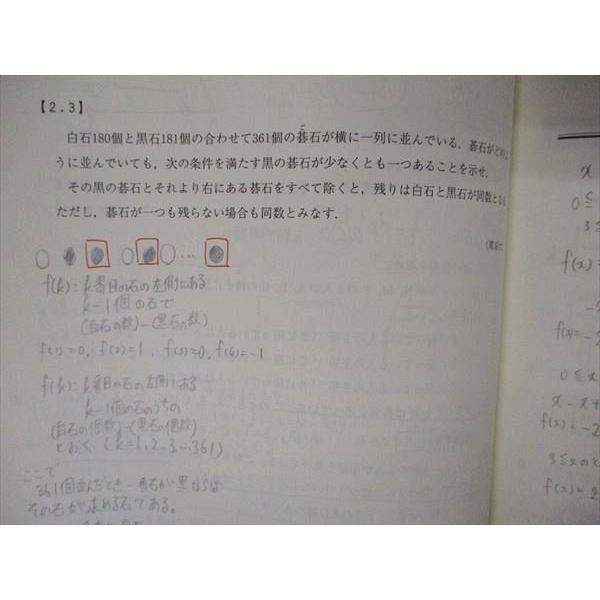 【2.3】
白石180個と黒石181個の合わせて361個の碁石が横に一列に並んでいる．碁石がどのよ
うに並んでいても，次の条件を満たす黒の碁石が少なくとも一つあることを示せ．
その黒の碁石とそれより右にある碁石をすべて除くと，残りは白石と黒石が同数となる
ただし，碁石が一つも残らない場合も同数とみなす．
f(k)：k番目の石の左側にある
k－1個の石で
(白石の数)－(黒石の数)
f(1)=0, f(2)=1, f(3)=0, f(4)=-1
f(k)：k番目の石の左側にある
k－1個の石のうちの
(白石の個数)－(黒石の個数)
とおく (k=1,2,3,…361)
ここで
361個並んだとき一番石が黒ならば
その石が求める石である。
x
0≦
3≦
f(x)=
f(x)=-2
0≦x
x-x+
f(x)=-2
3≦xのと
f(x)=2